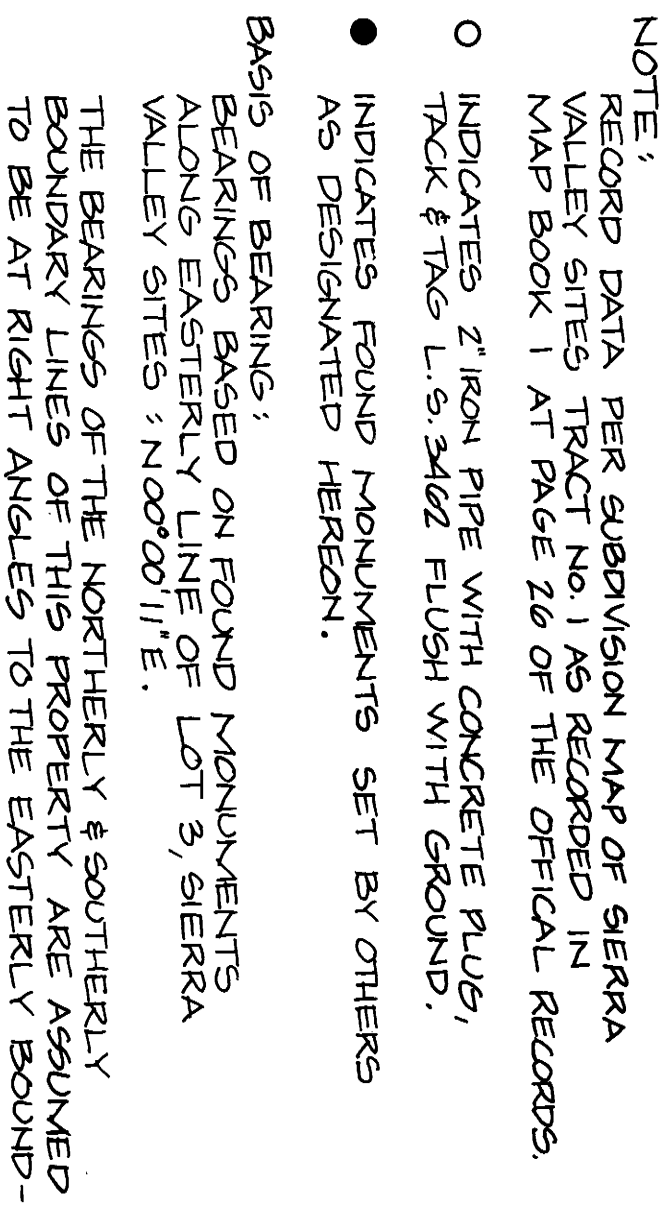 NOTE:
RECORD DATA PER SUBDIVISION MAP OF SIERRA
VALLEY SITES TRACT No. 1 AS RECORDED IN
MAP BOOK 1 AT PAGE 26 OF THE OFFICAL RECORDS.
INDICATES 2" IRON PIPE WITH CONCRETE PLUG,
TACK & TAG L.S. 3462 FLUSH WITH GROUND.
INDICATES FOUND MONUMENTS SET BY OTHERS
AS DESIGNATED HEREON.
BASIS OF BEARING:
BEARINGS BASED ON FOUND MONUMENTS
ALONG EASTERLY LINE OF LOT 3, SIERRA
VALLEY SITES : N 00°00'11" E.
THE BEARINGS OF THE NORTHERLY & SOUTHERLY
BOUNDARY LINES OF THIS PROPERTY ARE ASSUMED
TO BE AT RIGHT ANGLES TO THE EASTERLY BOUND-